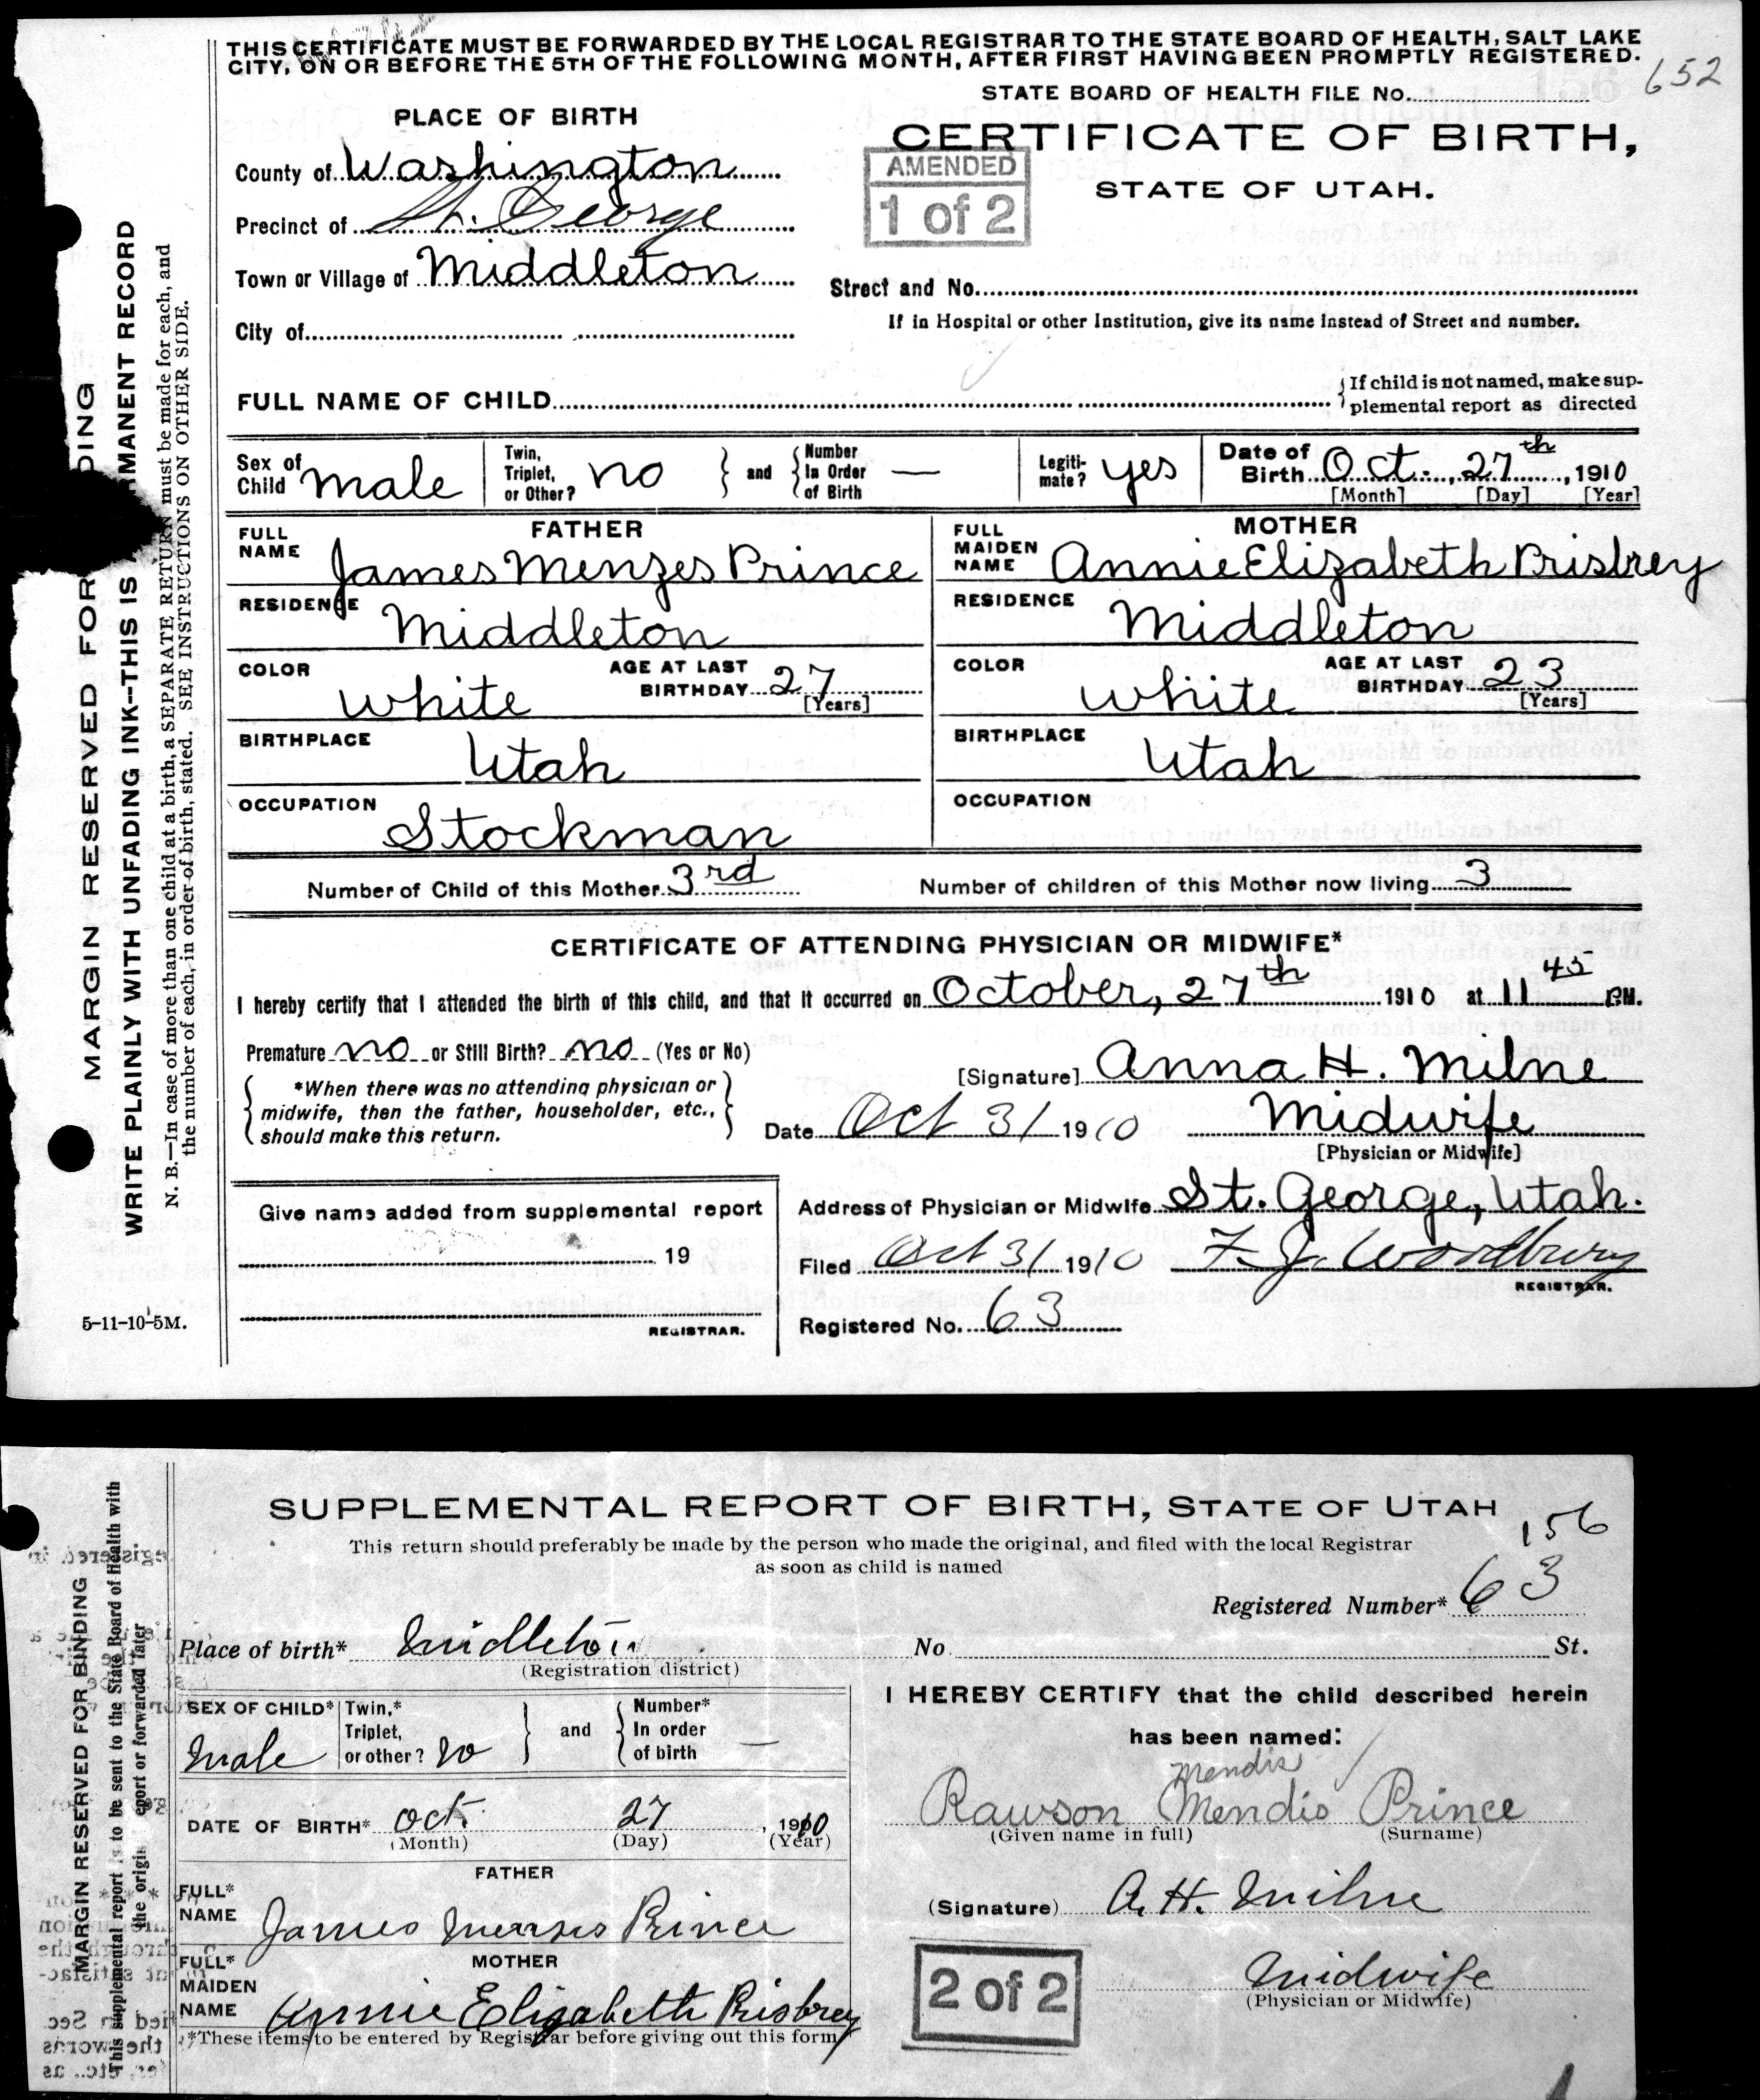 THIS CERTIFICATE MUST BE FORWARDED BY THE LOCAL REGISTRAR TO THE STATE BOARD OF HEALTH, SALT LAKE
CITY, ON OR BEFORE THE 5TH OF THE FOLLOWING MONTH, AFTER FIRST HAVING BEEN PROMPTLY REGISTERED.
652
STATE BOARD OF HEALTH FILE No.
156
PLACE OF BIRTH
CERTIFICATE OF BIRTH,
STATE OF UTAH.
AMENDED
1 of 2
County of Washington
Precinct of St. George
Town or Village of Middleton
Street and No.
If in Hospital or other Institution, give its name instead of Street and number.
City of
FULL NAME OF CHILD
If child is not named, make sup-
plemental report as directed
Sex of Child male
Twin, Triplet, or Other? no
and
Number In Order of Birth —
Legiti-mate? yes
Date of Birth Oct. 27th, 1910
[Month] [Day] [Year]
FATHER
FULL NAME James Menzes Prince
RESIDENCE Middleton
COLOR White
AGE AT LAST BIRTHDAY 27
[Years]
BIRTHPLACE Utah
OCCUPATION Stockman
MOTHER
FULL MAIDEN NAME Annie Elizabeth Prisbrey
RESIDENCE Middleton
COLOR White
AGE AT LAST BIRTHDAY 23
[Years]
BIRTHPLACE Utah
OCCUPATION
Number of Child of this Mother 3rd
Number of children of this Mother now living 3
CERTIFICATE OF ATTENDING PHYSICIAN OR MIDWIFE*
I hereby certify that I attended the birth of this child, and that it occurred on October, 27th 1910 at 11 45 P.M.
Premature no or Still Birth? no (Yes or No)
*When there was no attending physician or
midwife, then the father, householder, etc.,
should make this return.
[Signature] Anna H. Milne
Date Oct 31 1910 Midwife
[Physician or Midwife]
Give name added from supplemental report
19
REGISTRAR.
Address of Physician or Midwife St. George, Utah.
Filed Oct 31 1910 F. J. Woodbury
REGISTRAR.
Registered No. 63
5-11-10-5M.
MARGIN RESERVED FOR DING
WRITE PLAINLY WITH UNFADING INK--THIS IS RMANENT RECORD
N. B.—In case of more than one child at a birth, a SEPARATE RETURN must be made for each, and
the number of each, in order of birth, stated. SEE INSTRUCTIONS ON OTHER SIDE.
SUPPLEMENTAL REPORT OF BIRTH, STATE OF UTAH
156
This return should preferably be made by the person who made the original, and filed with the local Registrar
as soon as child is named
Registered Number* 63
Place of birth* Middleton
(Registration district)
No St.
SEX OF CHILD* Male
Twin,* Triplet, or other? no
and
Number* In order of birth —
DATE OF BIRTH* Oct. 27, 1910
(Month) (Day) (Year)
FATHER
FULL* NAME James Menzes Prince
MOTHER
FULL* MAIDEN NAME Annie Elizabeth Prisbrey
*These items to be entered by Registrar before giving out this form
I HEREBY CERTIFY that the child described herein
has been named:
Mendis
Rawson Mendis Prince
(Given name in full) (Surname)
(Signature) A. H. Milne
Midwife
(Physician or Midwife)
2 of 2
MARGIN RESERVED FOR BINDING
This supplemental report is to be sent to the State Board of Health with
the origin eport or forwarded later